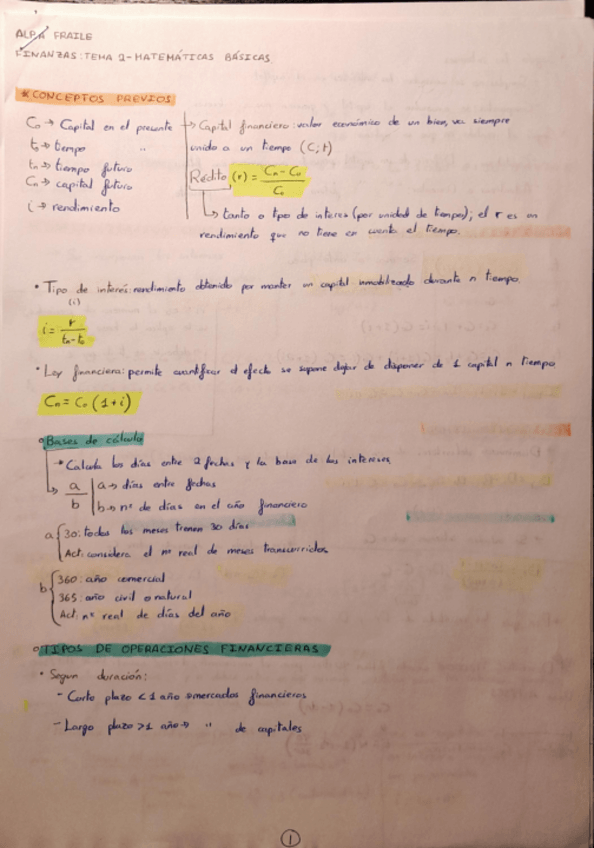 ALBA FRAILE
FINANZAS: TEMA 2 - MATEMÁTICAS BÁSICAS.
* CONCEPTOS PREVIOS
C₀ → Capital en el presente
t₀ → tiempo "
tn → tiempo futuro
Cn → capital futuro
i → rendimiento
→ Capital financiero: valor económico de un bien, va siempre
unido a un tiempo (C; t)
Rédito (r) = Cn - C₀ / C₀
↳ tanto o tipo de interés (por unidad de tiempo); el r es un
rendimiento que no tiene en cuenta el tiempo.
• Tipo de interés: rendimiento obtenido por mantener un capital inmobilizado durante n tiempo.
(i)
i = r / tn - t₀
• Ley financiera: permite cuantificar el efecto se supone dejar de disponer de 1 capital n tiempo
Cn = C₀ (1+i)
° Bases de cálculo
→ Calcula los días entre 2 fechas y la base de los intereses.
↳ a / b | a → días entre fechas
b → nº de días en el año financiero
a { 30: todos los meses tienen 30 días
Act: considera el nº real de meses transcurridos.
b { 360: año comercial
365: año civil o natural
Act: nº real de días del año
° TIPOS DE OPERACIONES FINANCIERAS
• Segun duración:
- Corto plazo < 1 año → mercados financieros
- Largo plazo > 1 año → " de capitales
1